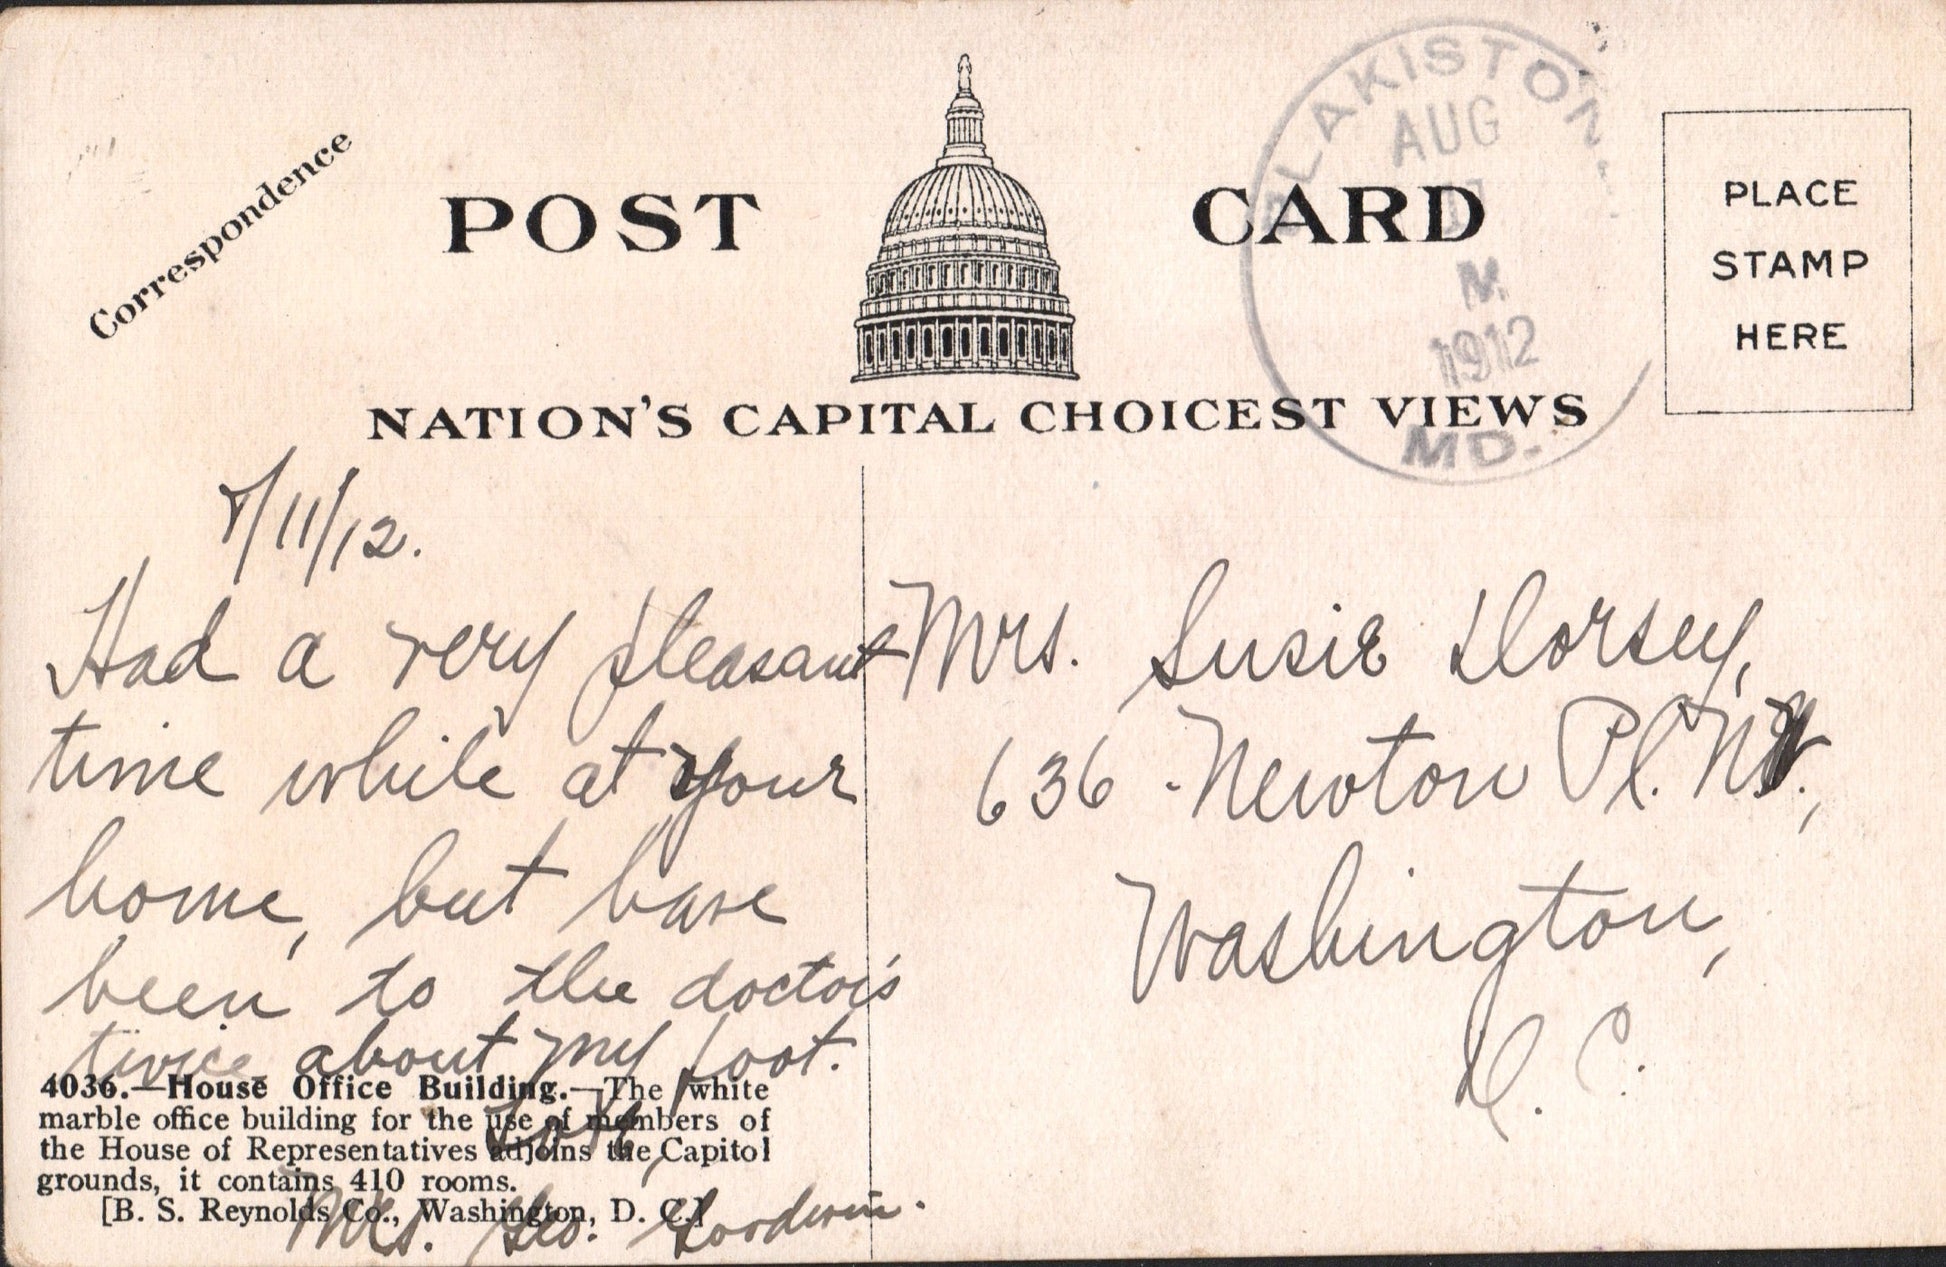 Correspondence
POST CARD
NATION'S CAPITAL CHOICEST VIEWS
PLACE
STAMP
HERE
BLAKISTON,
AUG
11
M
1912
MD.
8/11/12.
Had a very pleasant
time while at your
home, but have
been to the doctor's
twice about my foot.
Love,
Mrs. Geo. Goodwin.
Mrs. Susie Dorsey,
636 Newton Pl. N.W.,
Washington,
D. C.
4036.—House Office Building.—The white
marble office building for the use of members of
the House of Representatives adjoins the Capitol
grounds, it contains 410 rooms.
[B. S. Reynolds Co., Washington, D. C.]